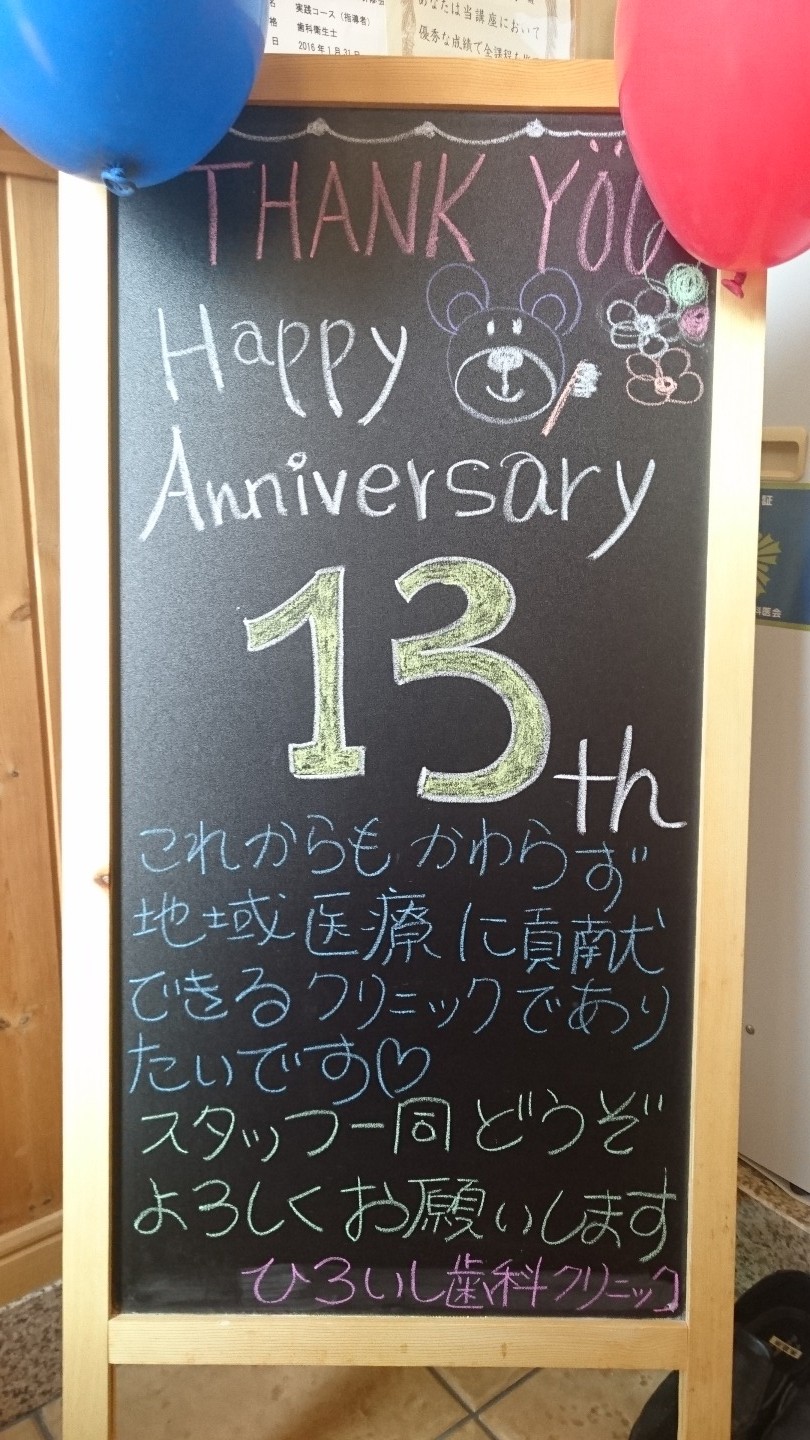 実践コース（指導者）
歯科衛生士
2016年1月31日
あなたは当講座において
優秀な成績で全課程を
THANK YÖU
Happy
Anniversary
13th
これからもかわらず
地域医療に貢献
できるクリニックであり
たいです♡
スタッフ一同どうぞ
よろしくお願いします
ひろいし歯科クリニック
証
科医会